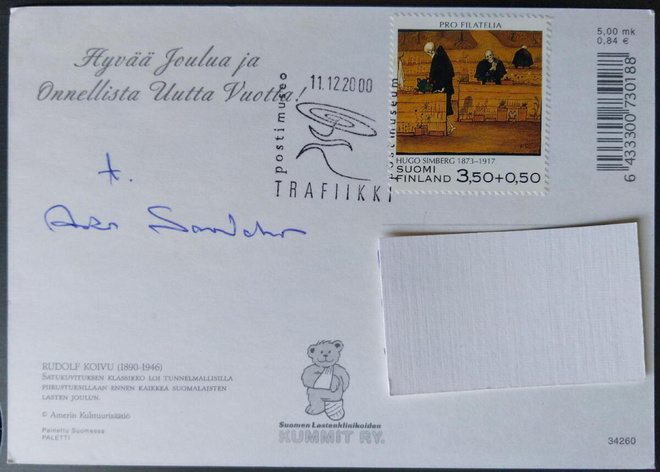 Hyvää Joulua ja
Onnellista Uutta Vuotta!
postimuseo
11.12.2000
postmuseum
TRAFIIKKI
PRO FILATELIA
HUGO SIMBERG 1873–1917
SUOMI
FINLAND 3,50+0,50
5,00 mk
0,84 €
6 433300 730188
t.
RUDOLF KOIVU (1890-1946)
SATUKUVITUKSEN KLASSIKKO LOI TUNNELMALLISILLA
PIIRUSTUKSILLAAN ENNEN KAIKKEA SUOMALAISTEN
LASTEN JOULUN.
© Amerin Kulttuurisäätiö
Painettu Suomessa
PALETTI
Suomen Lastenklinikoiden
KUMMIT RY.
34260